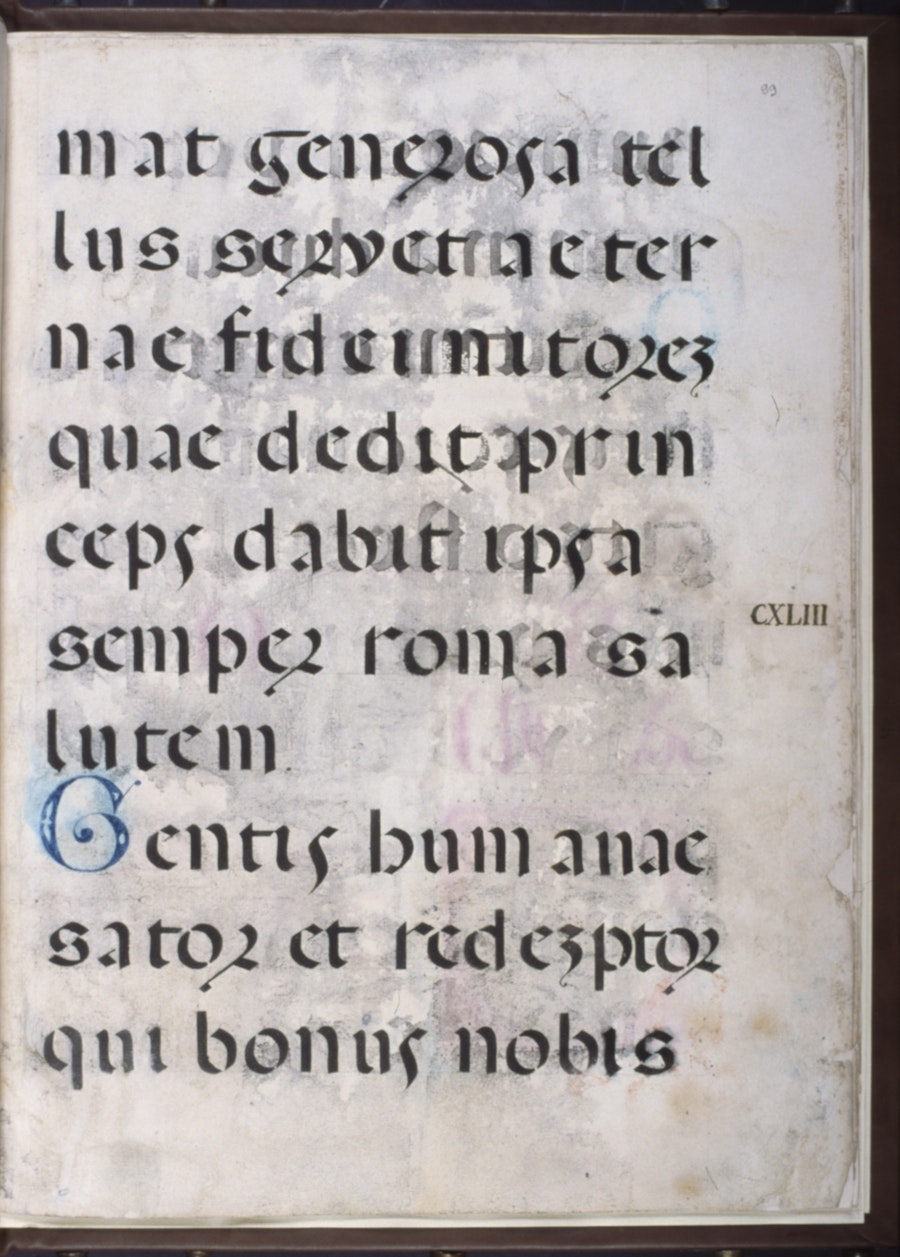 99
mat generosa tel
lus servet aeter
nae fidei nitorez
quae dedit prin
ceps dabit ipsa
CXLIII
semper roma sa
lutem
Gentis humanae
sator et redezptor
qui bonus nobis